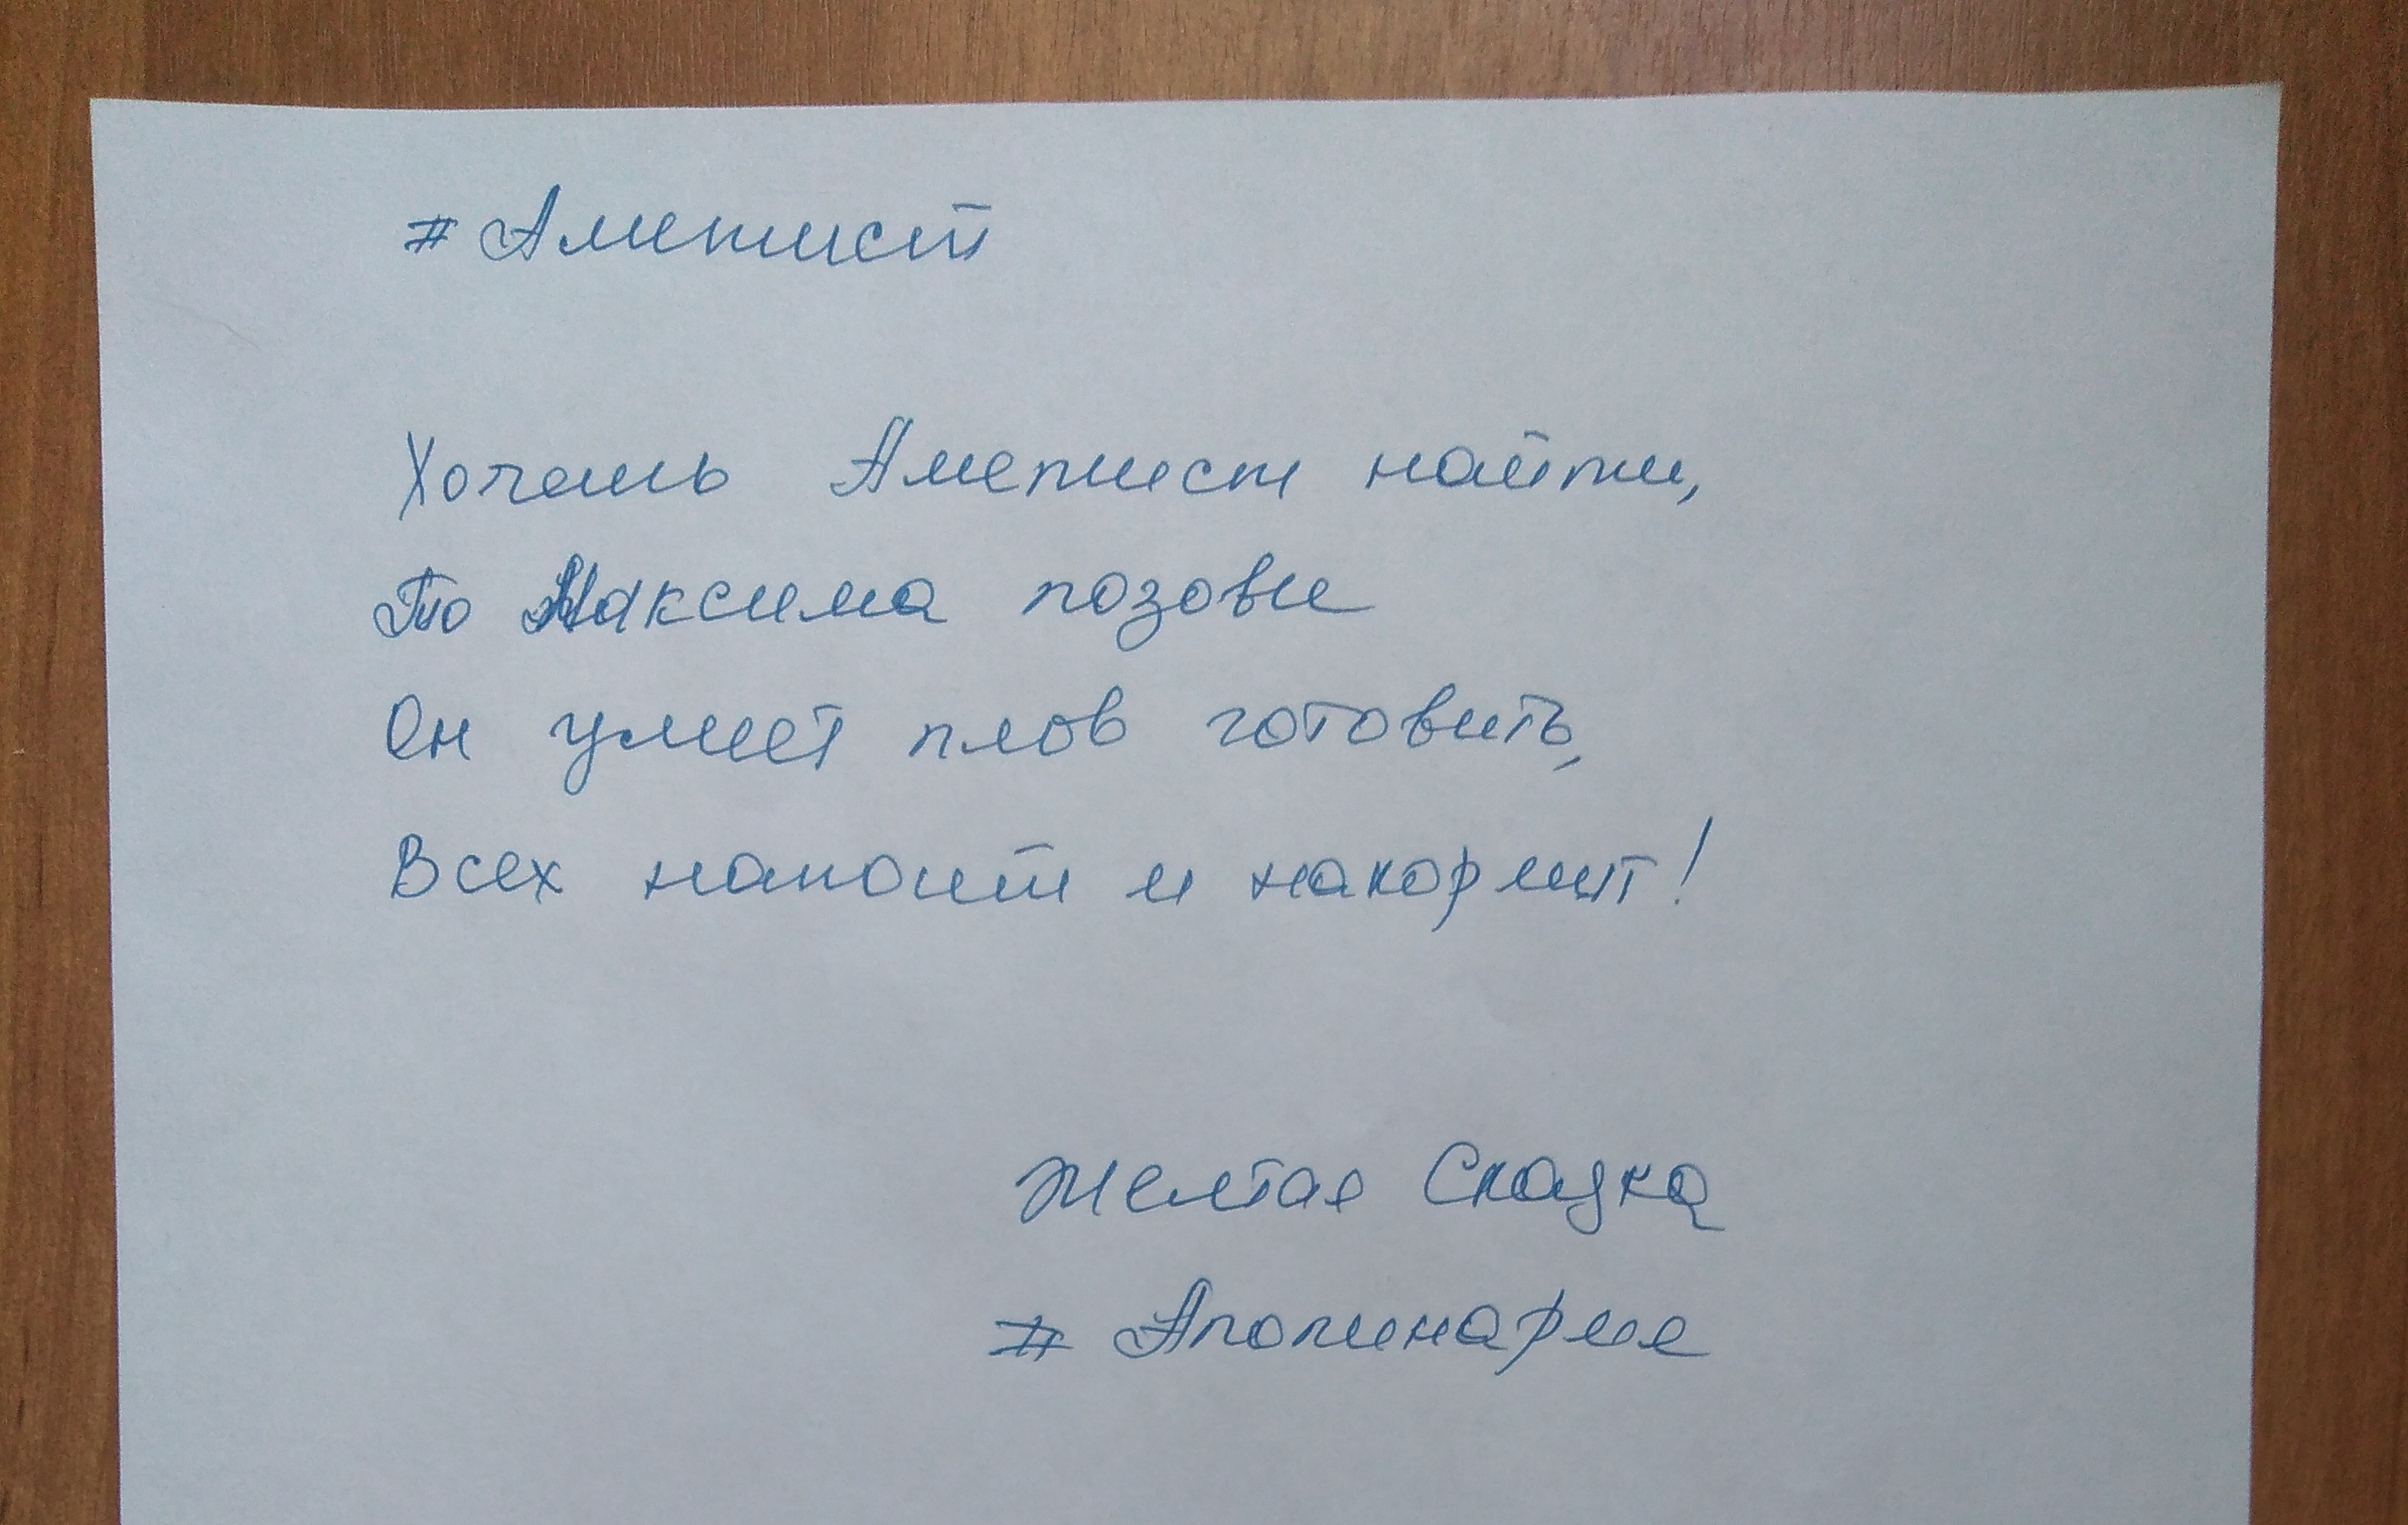 #Аметист
Хочешь Аметист найти,
То Максима позови
Он умеет плов готовить,
Всех напоит и накормит!
Желтая Сказка
# Аполинария